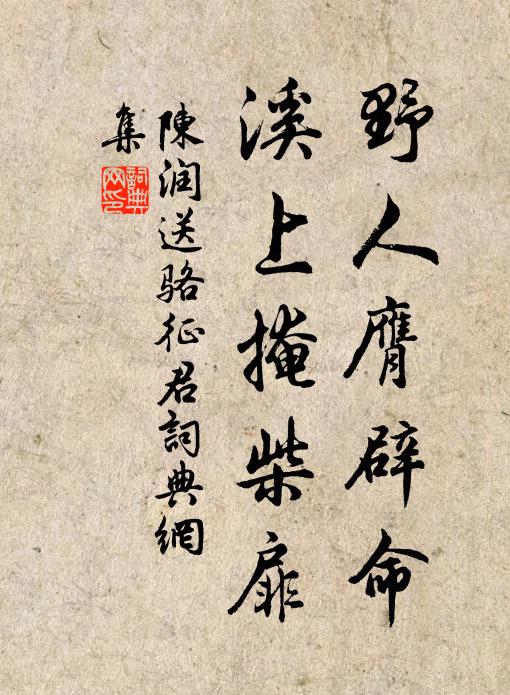 野人膺辟命
溪上掩柴扉
陳润送骆征君詞典網
集
詞典
网印